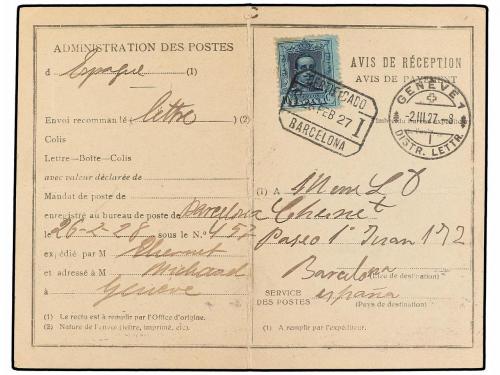 ADMINISTRATION DES POSTES
d Espagne (1)
Envoi recommanlé lettre (2)
Colis
Lettre-Boîte-Colis
avec valeur déclarée de
Mandat de poste de
enregistré au bureau de poste de Barcelona
le 26-2-28 sous le N.º 452
expédié par M
et adressé à M Michaud
à Genève
(1) Le recto est à remplir par l'Office d'origine.
(2) Nature de l'envoi (lettre, imprimé, etc.)
CERTIFICADO
FEB 27 1
BARCELONA
AVIS DE RÉCEPTION
AVIS DE PAYEMENT
GENÈVE 1
-2.III.27.-8
DISTR. LETTR.
(1) A Mme
Paseo Sn Juan 172
Barcelona
(Lieu de destination)
SERVICE
DES POSTES
españa
(Pays de destination)
(1) A remplir par l'expéditeur.